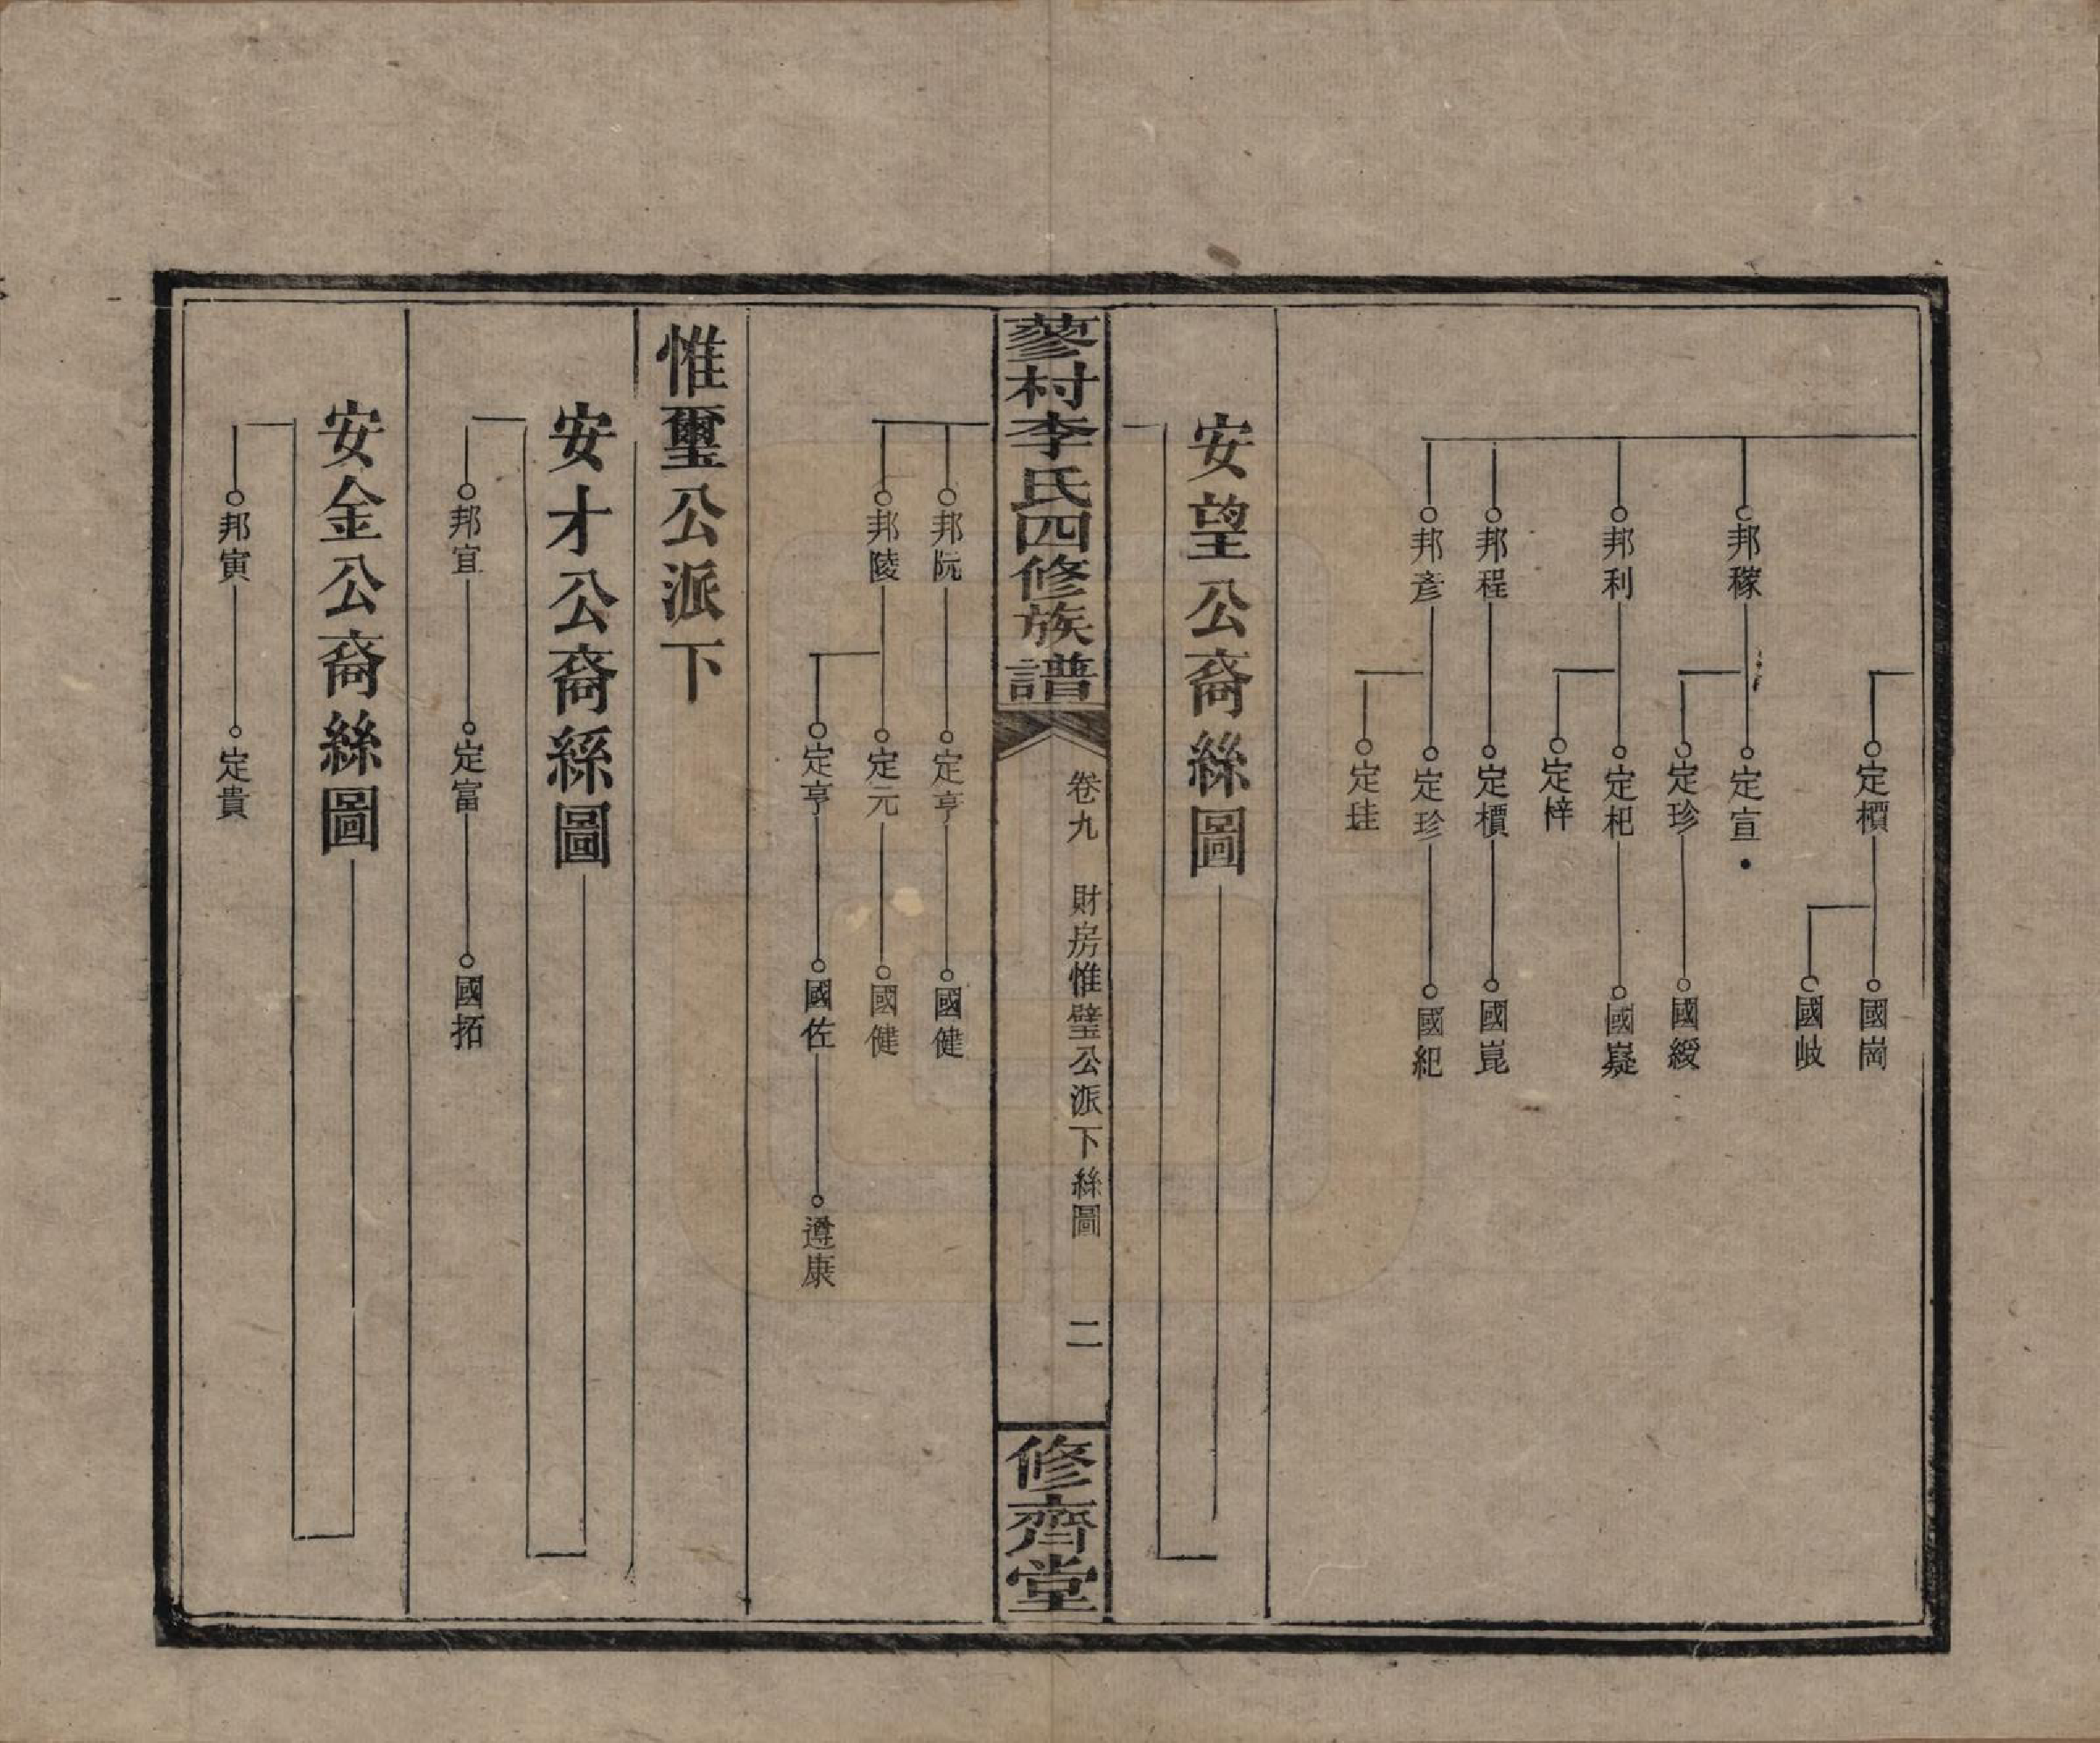 定檟
國崗
國岐
邦稼
定宣
定珍
國緩
邦利
定杞
國嶷
定梓
邦程
定檟
國崑
邦彥
定珍
國紀
定珪
安望公裔絲圖
蓼村李氏四修族譜
卷九 財房惟璧公派下絲圖 二
修齊堂
邦阮
定亨
國健
邦陵
定元
國健
定亨
國佐
遵康
惟璽公派下
安才公裔絲圖
邦宜
定富
國拓
安金公裔絲圖
邦寅
定貴